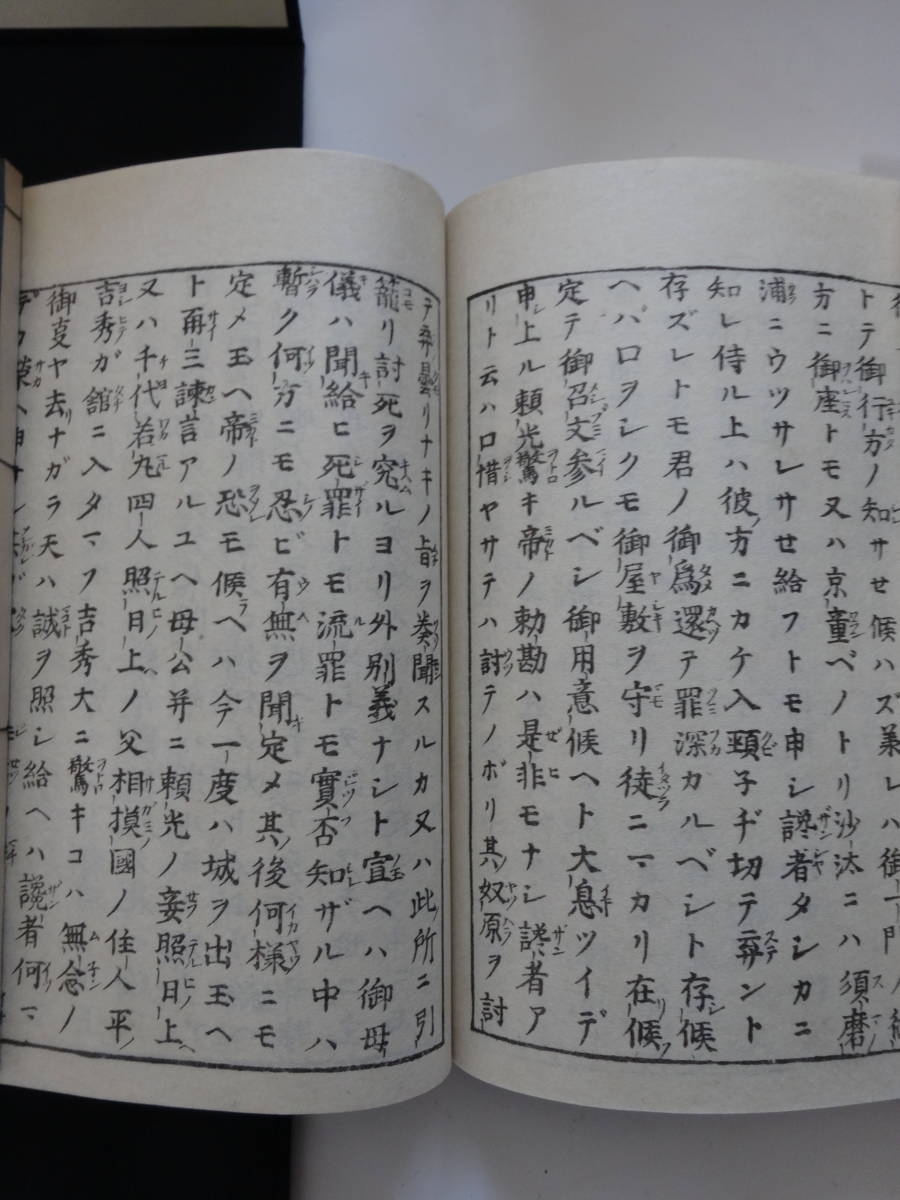 トテ御行方ノ知サセ候ハズ兼レハ御一門ノ
方ニ御座トモ又ハ京童ベノトリ沙汰ニハ須磨ノ
浦ニウツサレサせ給フトモ申シ讒者タシカニ
知レ侍ル上ハ彼ノ方ニカケ入頸子ヂ切テ弃ント
存ズレトモ君ノ御為還テ罪深カルベシト存候
ヘバロヲシクモ御屋敷ヲ守リ徒ニマカリ在候フ
定テ御召文参ルベシ御用意候ヘト大息ツイデ
申シ上ル頼光驚キ帝ノ勅勘ハ是非モナシ讒者ア
リト云ハロ惜ヤサテハ討テノボリ其ノ奴原ヲ討
テ弃曇リナキノ旨ヲ奏聞スルカ又ハ此ノ所ニ引
籠リ討死ヲ究ルヨリ外別義ナシト宣ヘハ御母
儀ハ聞給ヒ死罪トモ流罪トモ實否知ザル中ハ
暫ク何方ニモ忍ビ有無ヲ聞定メ其ノ後何様ニモ
定メ玉ヘ帝ノ恐モ候ヘハ今一度ハ城ヲ出玉ヘ
ト再三諫言アルユヘ母公并ニ頼光ノ妾照日ノ上
又ハ千代若丸四人照日ノ上ノ父相摸國ノ住人平ノ
吉秀ガ舘ニ入タマフ吉秀大ニ驚キコハ無念ノ
御叓ヤ去ナガラ天ハ誠ヲ照シ給ヘハ讒者何マ
デカ榮ヘ申サン